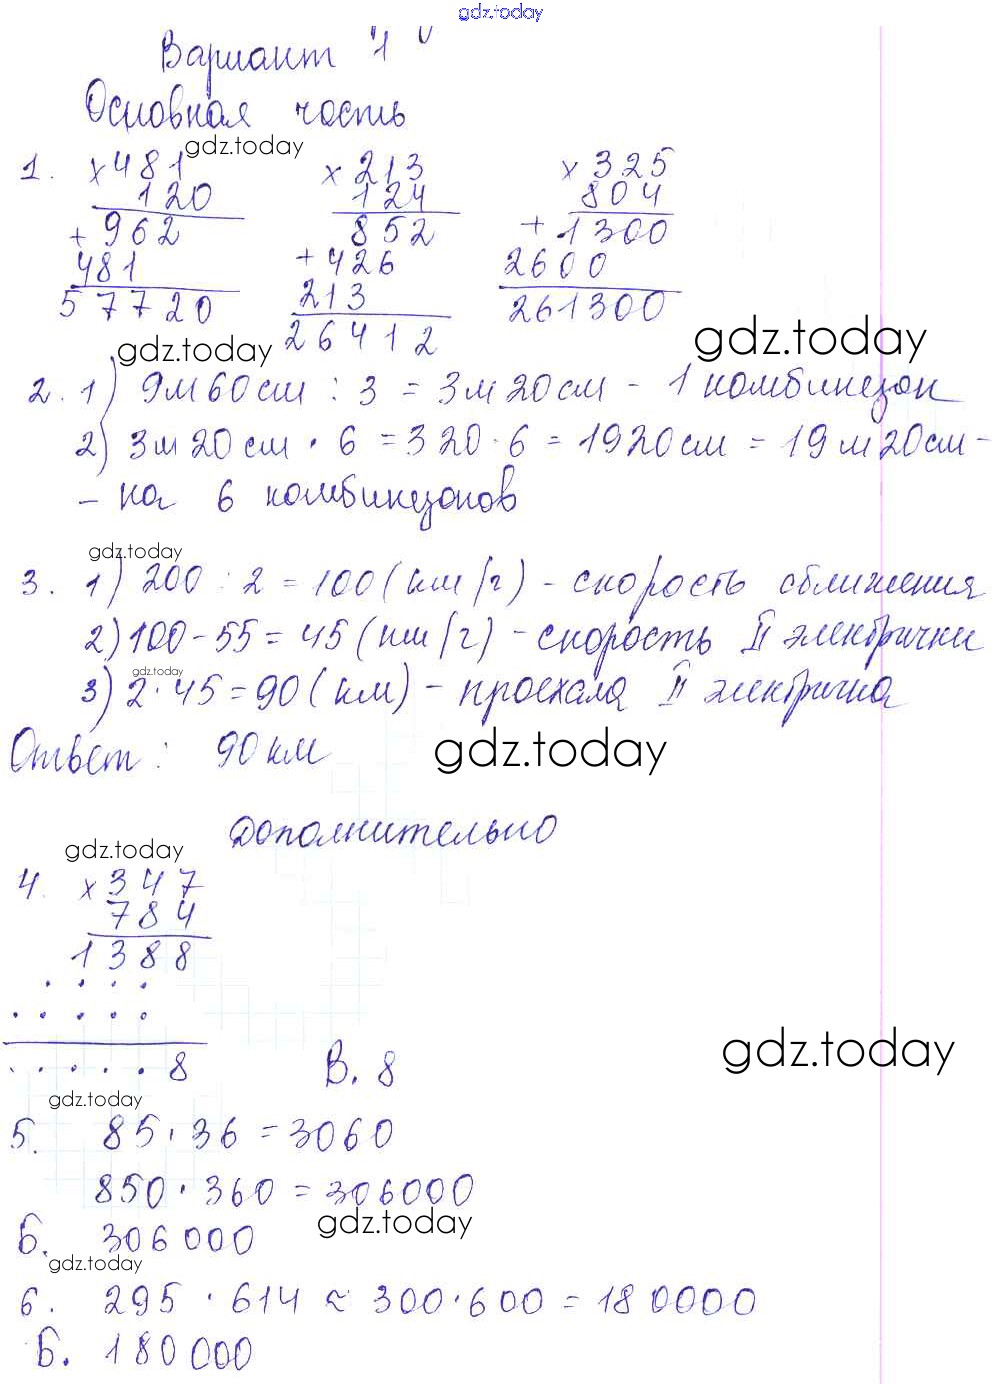 gdz.today
Вариант "1"
Основная часть
gdz.today
1. ×481 ×213 ×325
120 124 804
+962 852 +1300
481 +426 2600
57720 213 261300
26412
gdz.today gdz.today
2. 1) 9м 60см : 3 = 3м 20см - 1 комбинезон
2) 3м 20см · 6 = 320 · 6 = 1920см = 19м 20см -
- на 6 комбинезонов
gdz.today
3. 1) 200 : 2 = 100 (км/ч) - скорость сближения
2) 100 - 55 = 45 (км/ч) - скорость II электрички
gdz.today
3) 2 · 45 = 90 (км) - проехала II электричка
Ответ: 90 км
gdz.today
Дополнительно
gdz.today
4. ×347
784
1388
. . . .
. . . . .
. . . . . 8 В. 8
gdz.today
gdz.today
5. 85 · 36 = 3060
850 · 360 = 306000
gdz.today
Б. 306000
gdz.today
6. 295 · 614 ≈ 300 · 600 = 180000
Б. 180000